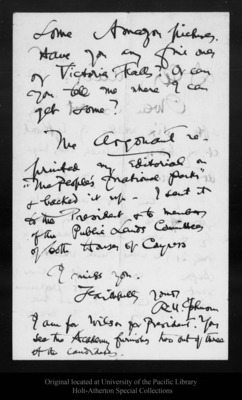 Some Amazon pictures.
Have you any fine ones
of Victoria Falls? Or can
you tell me where I can
get some?
The Argonaut re-
printed my Editorial on
"The People's National Parks"
& backed it up. I sent it
to the President, & to members
of the Public Lands Committees
of both Houses of Congress
I miss you.
Faithfully yours
R.U. Johnson
I am for Wilson for President. You
see the Academy furnishes two out of three
of the candidates.
Original located at University of the Pacific Library
Holt-Atherton Special Collections